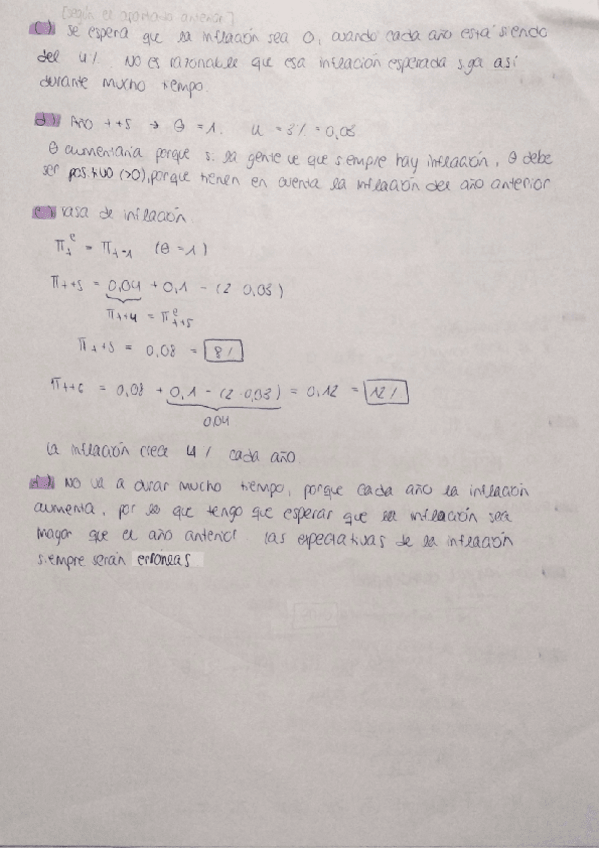 [según el apartado anterior]
c) Se espera que la inflación sea 0, cuando cada año está siendo
del 4% No es razonable que esa inflación esperada siga así
durante mucho tiempo.
d) Año t+5 → θ = 1. u = 3% = 0,03.
θ aumentaría porque si la gente ve que siempre hay inflación, θ debe
ser positivo (>0), porque tienen en cuenta la inflación del año anterior
e) Tasa de inflación
π_t^e = π_{t-1} (θ = 1)
π_{t+5} = 0,04 + 0,1 - (2·0,03)
π_{t+4} = π^e_{t+5}
π_{t+5} = 0,08 = 8%
π_{t+6} = 0,08 + 0,1 - (2·0,03) = 0,12 = 12%
0,04
La inflación crece 4% cada año
f) No va a durar mucho tiempo, porque cada año la inflación
aumenta, por lo que tengo que esperar que la inflación sea
mayor que el año anterior las expectativas de la inflación
siempre serán erróneas